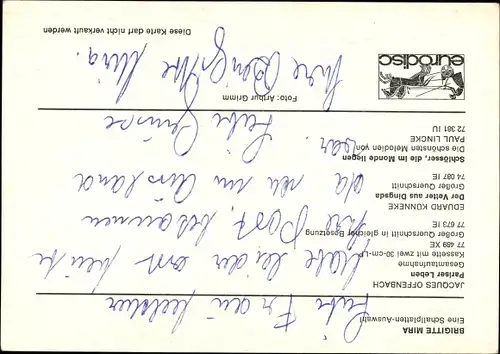 BRIGITTE MIRA
Eine Schallplatten-Auswahl
JACQUES OFFENBACH
Pariser Leben
Gesamtaufnahme
Kassette mit zwei 30-cm-LP
77 489 XE
Großer Querschnitt in gleicher Besetzung
77 673 IE
EDUARD KÜNNEKE
Der Vetter aus Dingsda
Großer Querschnitt
74 087 IE
Schlösser, die im Monde liegen
Die schönsten Melodien von
PAUL LINCKE
72 381 IU
Foto: Arthur Grimm
eurodisc
Diese Karte darf nicht verkauft werden
Liebe Frau
habe leider erst heute
Ihre Post bekommen
da ich im Ausland
war.
Liebe Grüsse
Ihre Brigitte Mira.